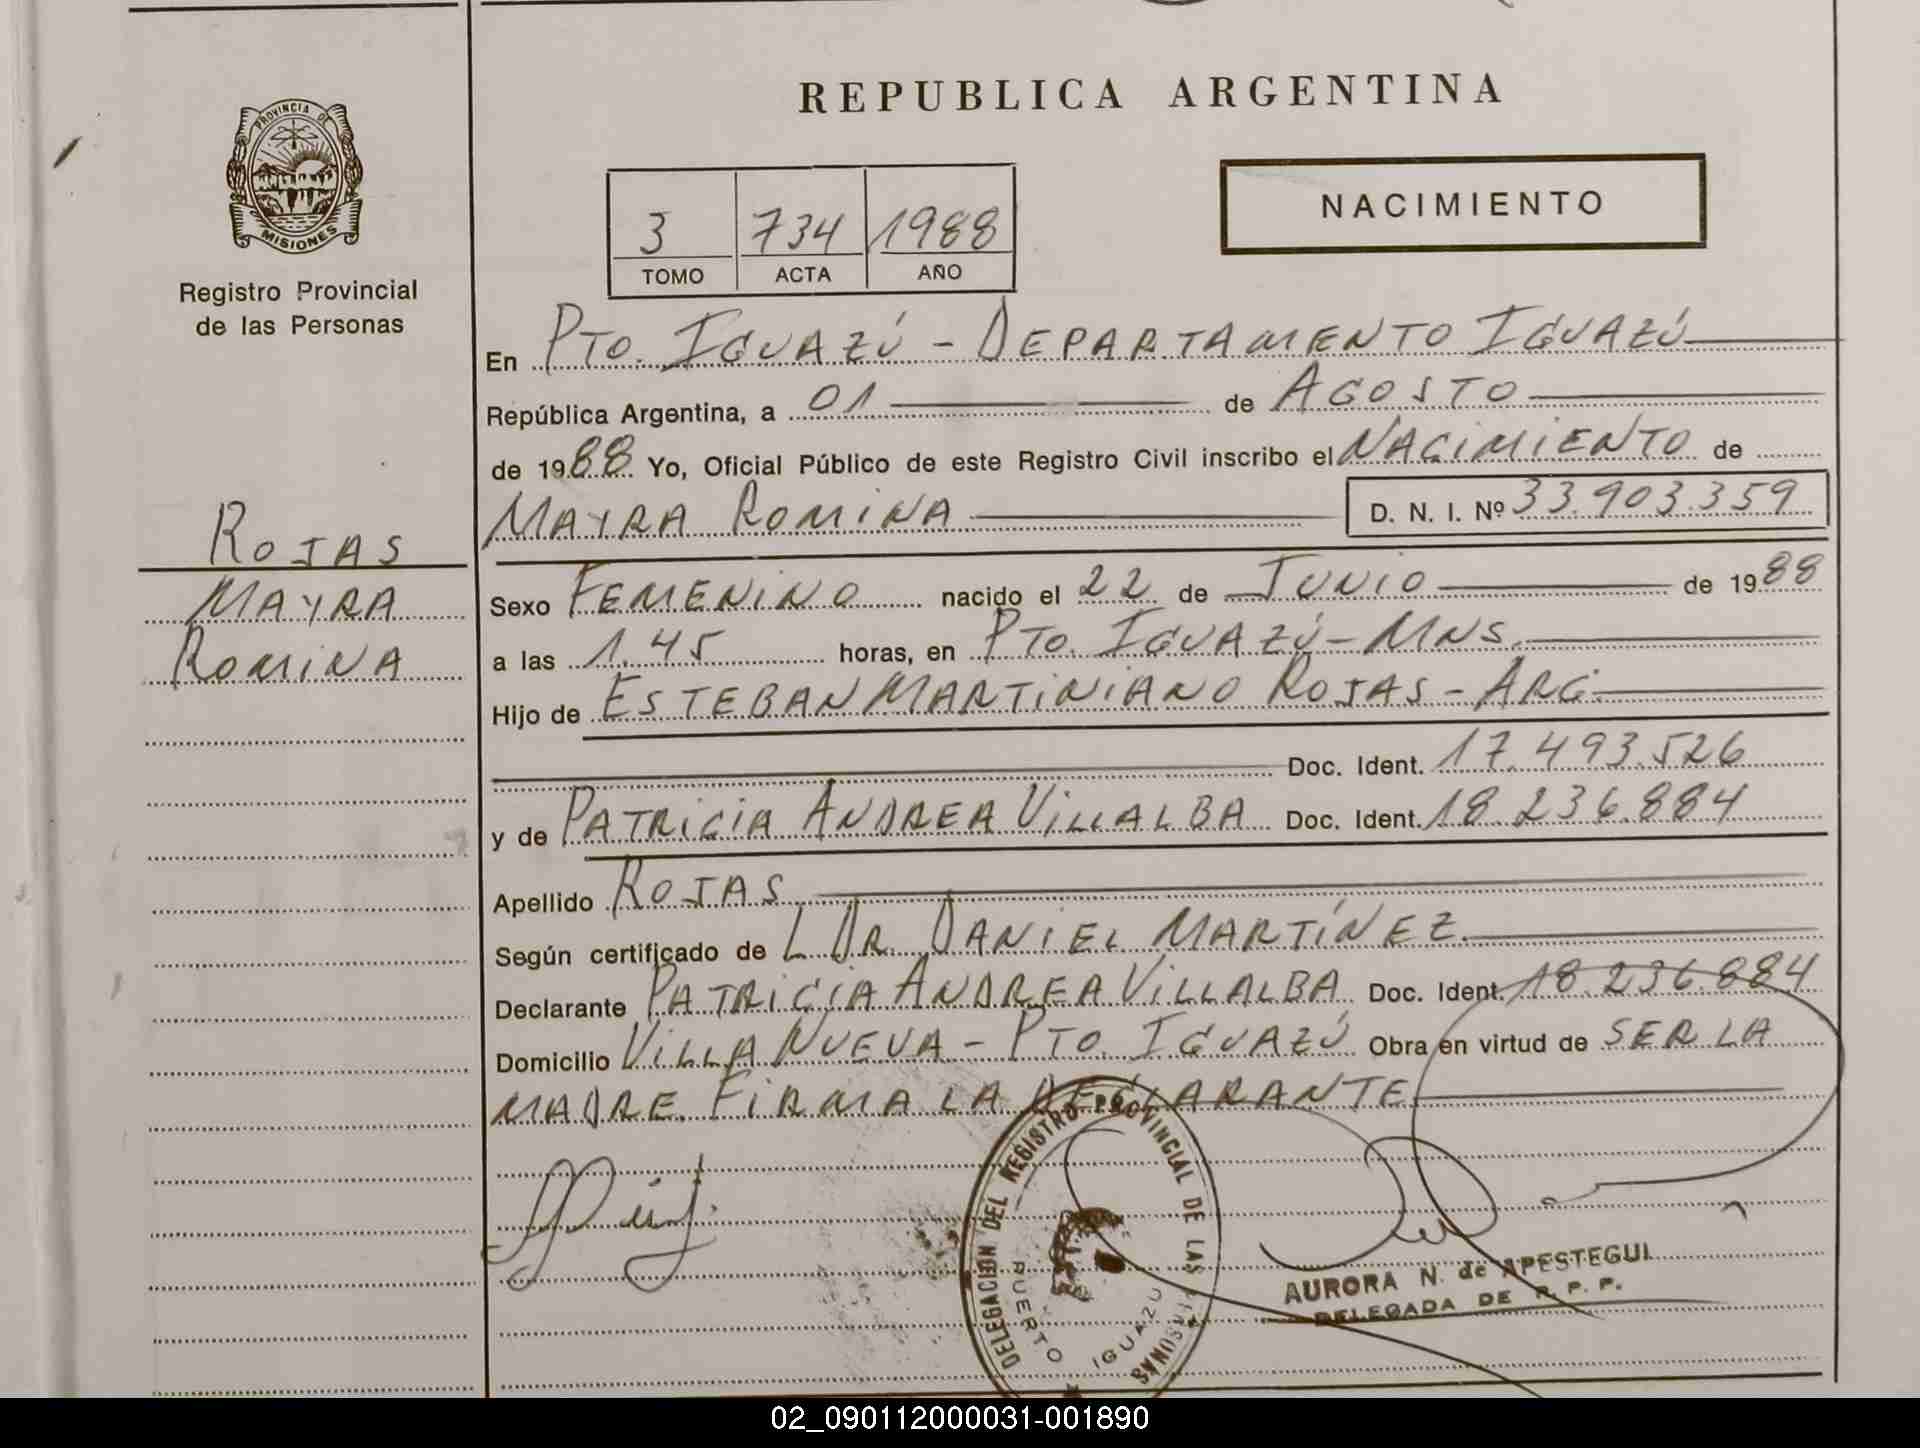 REPUBLICA ARGENTINA
PROVINCIA DE
MISIONES
Registro Provincial
de las Personas
3 734 1988
TOMO ACTA AÑO
NACIMIENTO
En PTO. IGUAZÚ - DEPARTAMENTO IGUAZÚ
República Argentina, a 01 de AGOSTO
de 1988 Yo, Oficial Público de este Registro Civil inscribo el NACIMIENTO de
MAYRA ROMINA D. N. I. Nº 33.903.359
ROJAS
MAYRA
ROMINA
Sexo FEMENINO nacido el 22 de JUNIO de 1988
a las 1.45 horas, en PTO. IGUAZÚ - MNS.
Hijo de ESTEBAN MARTINIANO ROJAS - ARG.
Doc. Ident. 17.493.526
y de PATRICIA ANDREA VILLALBA Doc. Ident. 18.236.884
Apellido ROJAS
Según certificado de L DR. DANIEL MARTÍNEZ
Declarante PATRICIA ANDREA VILLALBA Doc. Ident. 18.236.884
Domicilio VILLA NUEVA - PTO. IGUAZÚ Obra en virtud de SER LA
MADRE. FIRMA LA DECLARANTE
DELEGACION DEL REGISTRO PROVINCIAL DE LAS PERSONAS
PUERTO IGUAZU
AURORA N. de APESTEGUI
DELEGADA DE R. P. P.
02_090112000031-001890